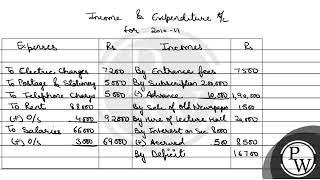 Income & Expenditure A/c
For 2010-11
Expenses Rs Incomes Rs
To Electric Charges 7200 By Entrance fees 7500
To Postage & Stationary 5000 By Subscription 200,000
To Telephone Charges 5000 (-) Advance 10,000 1,90,000
To Rent 88000 By Sale of Old Newspaper 1500
(+) O/s 4000 92000 By Hire of lecture Hall 20,000
To Salaries 66000 By Interest on Sec 8000
(+) O/s 3000 69000 (+) Accrued 500 8500
By Deficit 16700
PW